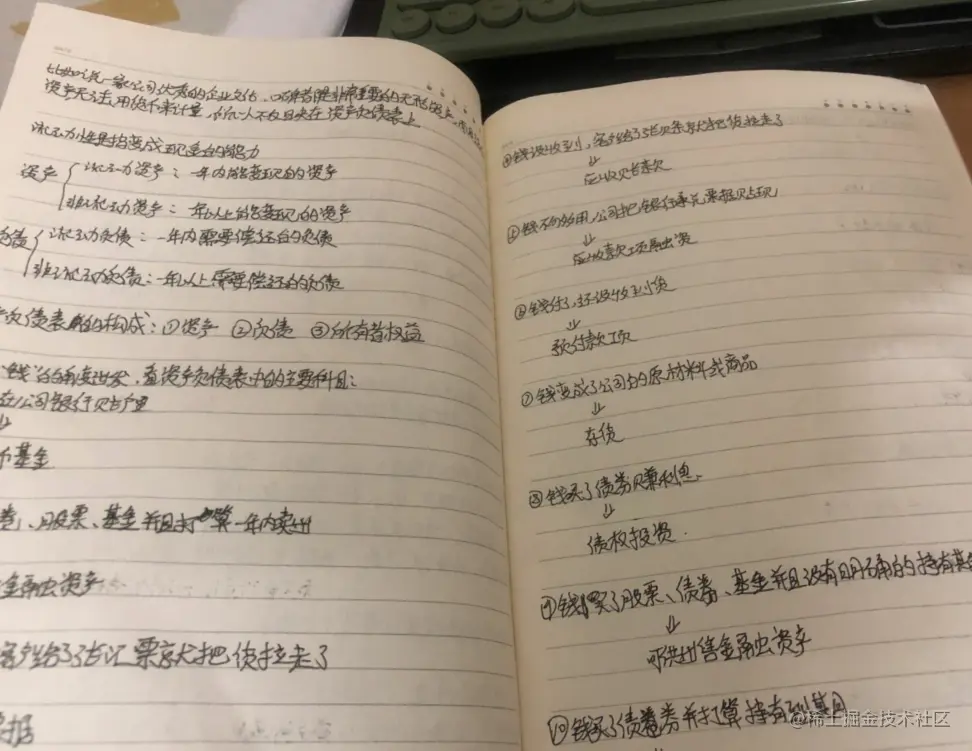 比如说一家公司优秀的企业文化、口碑都是非常重要的无形资产,
资产无法用货币来计量,所以不收录在资产负债表上
流动性是指变成现金的能力
资产 流动资产：一年内能变现的资产
非流动资产：一年以上能变现的资产
负债 流动负债：一年内需要偿还的负债
非流动负债：一年以上需要偿还的负债
负债表的构成：①资产 ②负债 ③所有者权益
"钱"的角度出发,看资产负债表中的主要科目：
在公司银行账户里
↓
币基金
券、股票、基金并且打算一年内卖出
金融资产
客户给了张汇票就把货拉走了
票据
④钱没收到,客户给了张欠条就把货拉走了
↓
应收账款
⑤钱不够用,公司把银行承兑票据贴现
↓
应收款项融资
⑥钱付了,还没收到货
↓
预付款项
⑦钱变成了公司的原材料或商品
↓
存货
⑧钱买了债券赚利息
↓
债权投资
⑨钱买了股票、债券、基金并且没有明确的持有其
↓
可供出售金融资产
⑩钱买了债券并打算持有到期
@稀土掘金技术社区